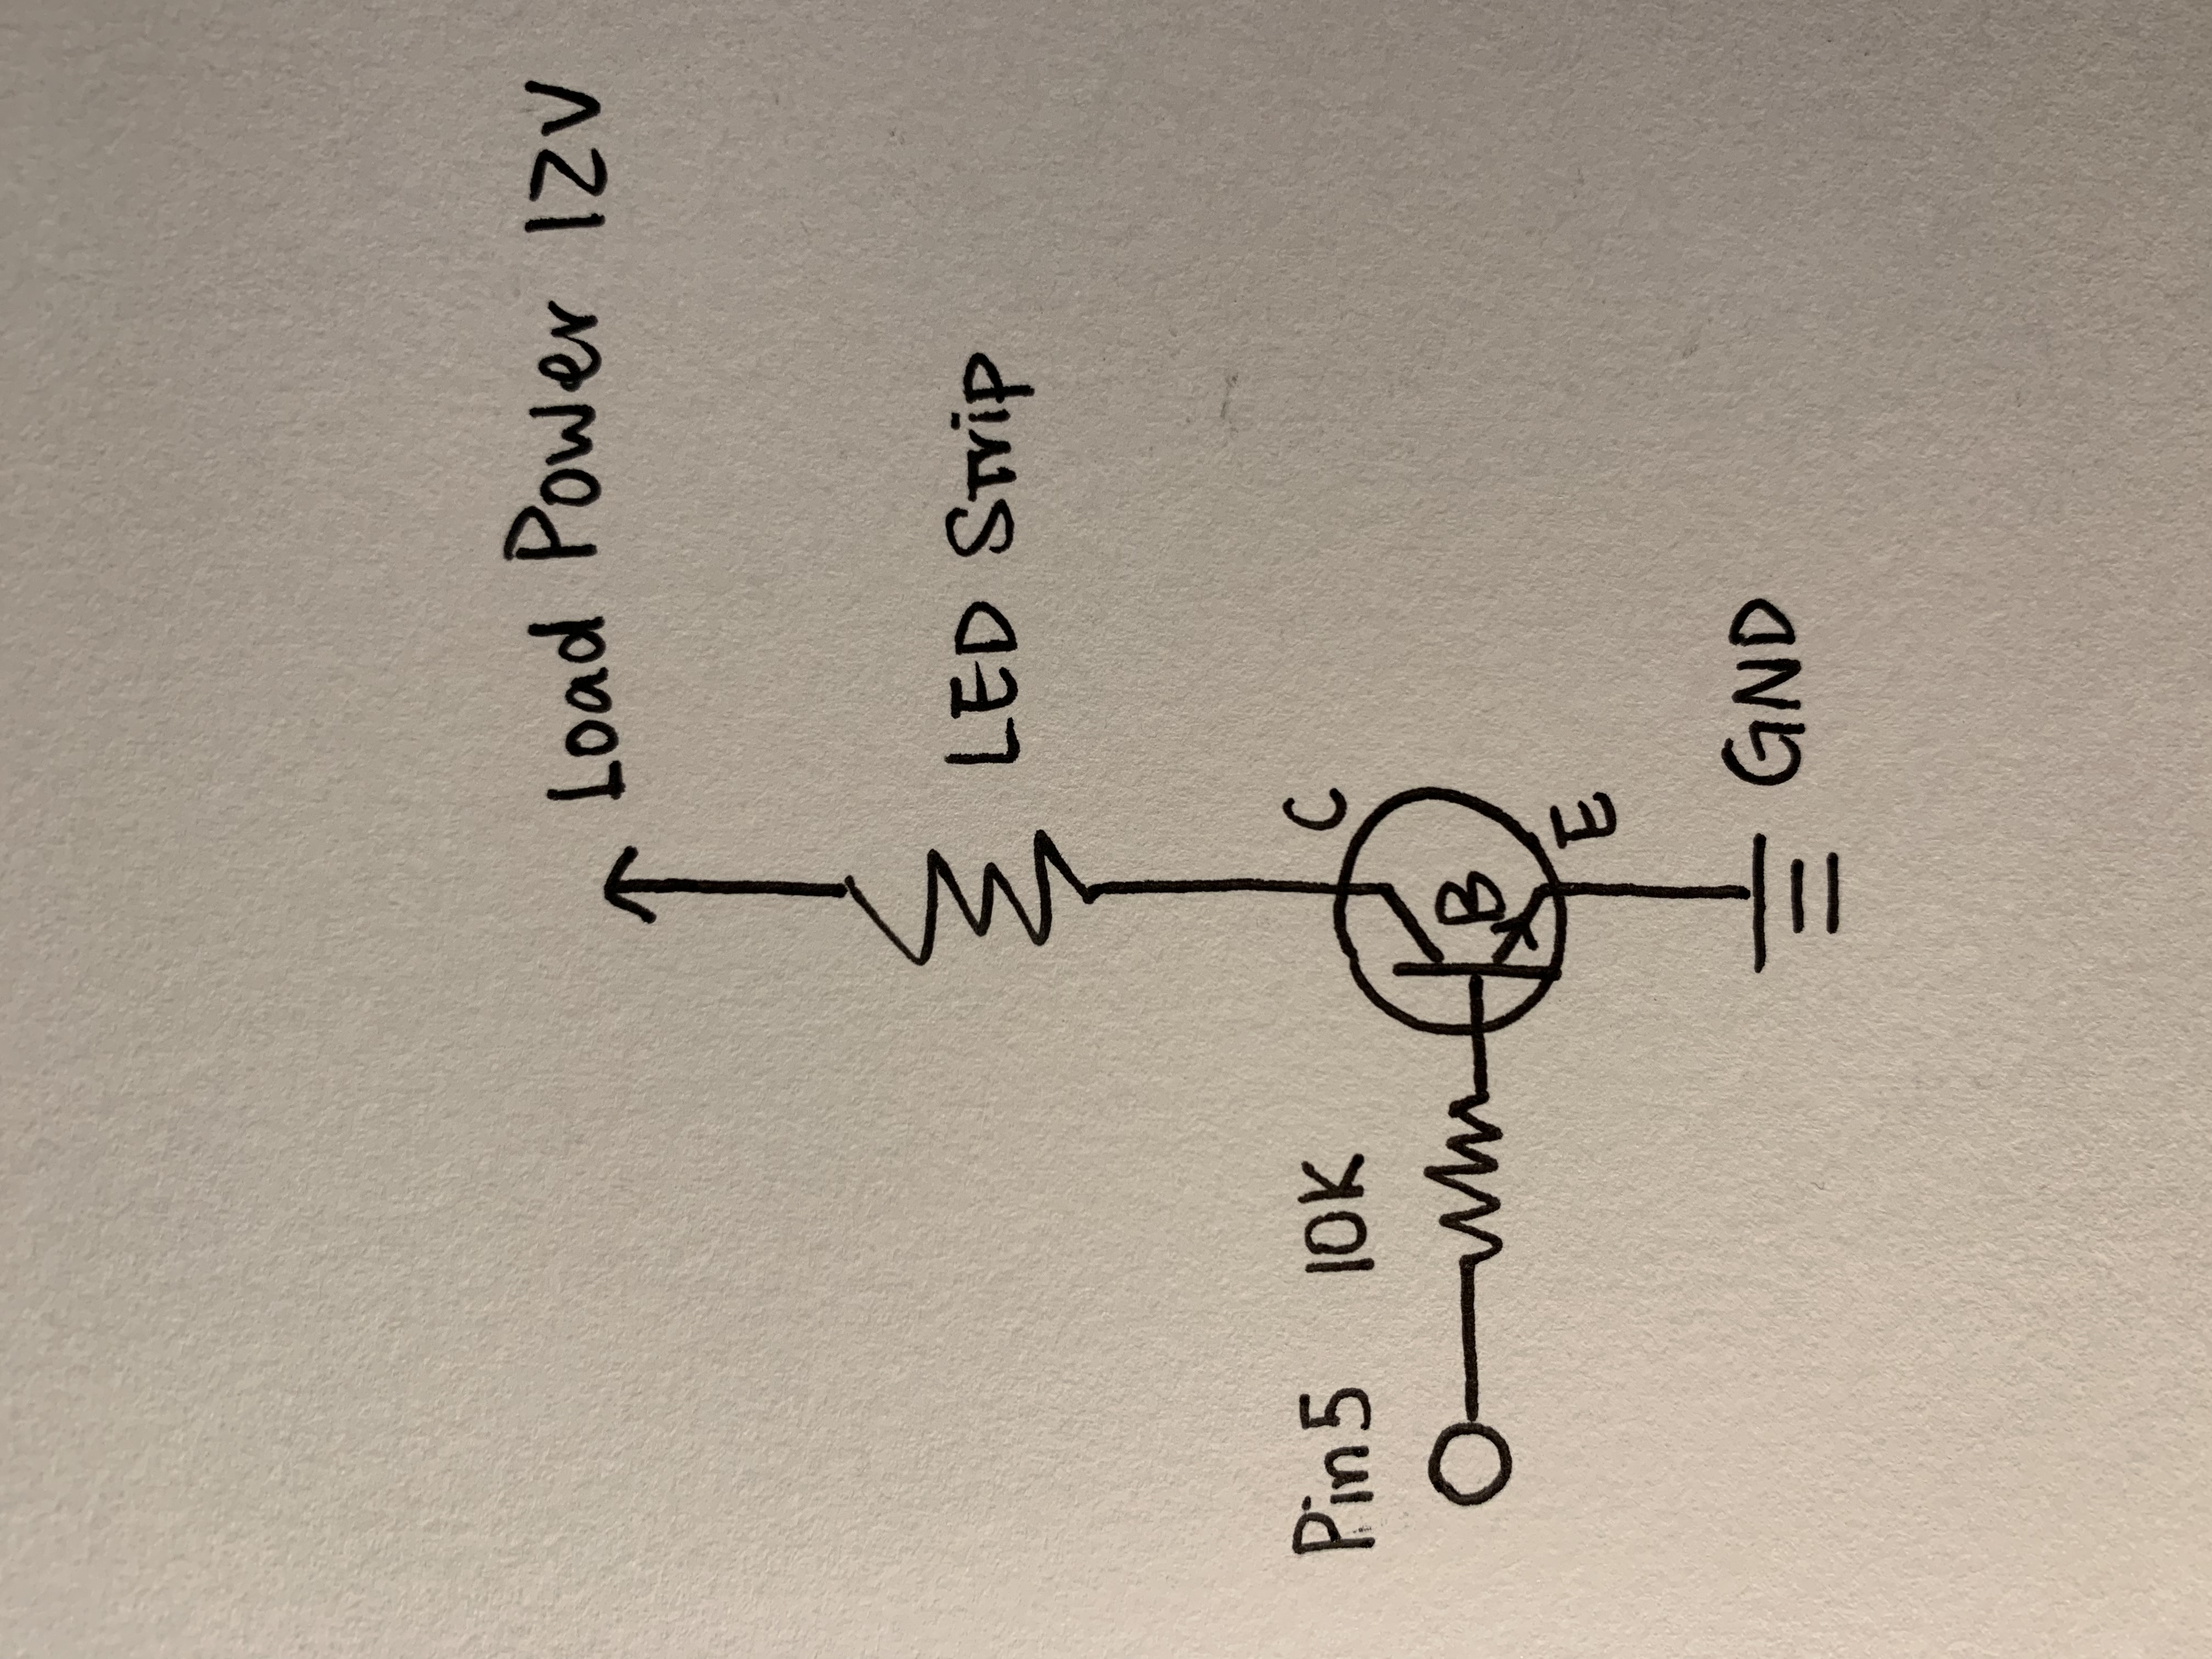 Load Power 12V
LED Strip
Pin5 10K
C
B
E
GND